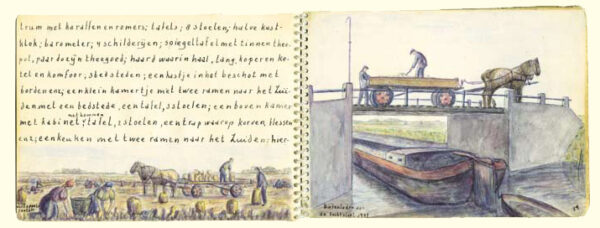 trum met karaffen en romers; tafels; 8 stoelen; halve kust-
klok; barometer; 4 schilderijen; spiegeltafel met tinnen thee
pot, paar dozijn theegoed; haard waarin haal, tang, koperen ke-
tel en komfoor; 3 bedsteden; een kastje in het beschot met
borden enz; een klein kamertje met twee ramen naar het Zui-
den met een bedstede, een tafel, 3 stoelen; een boven kamer
met kommen
met kabinet, tafel, 2 stoelen, een trap waarop korven, flessen
enz; een keuken met twee ramen naar het Zuiden; hier-